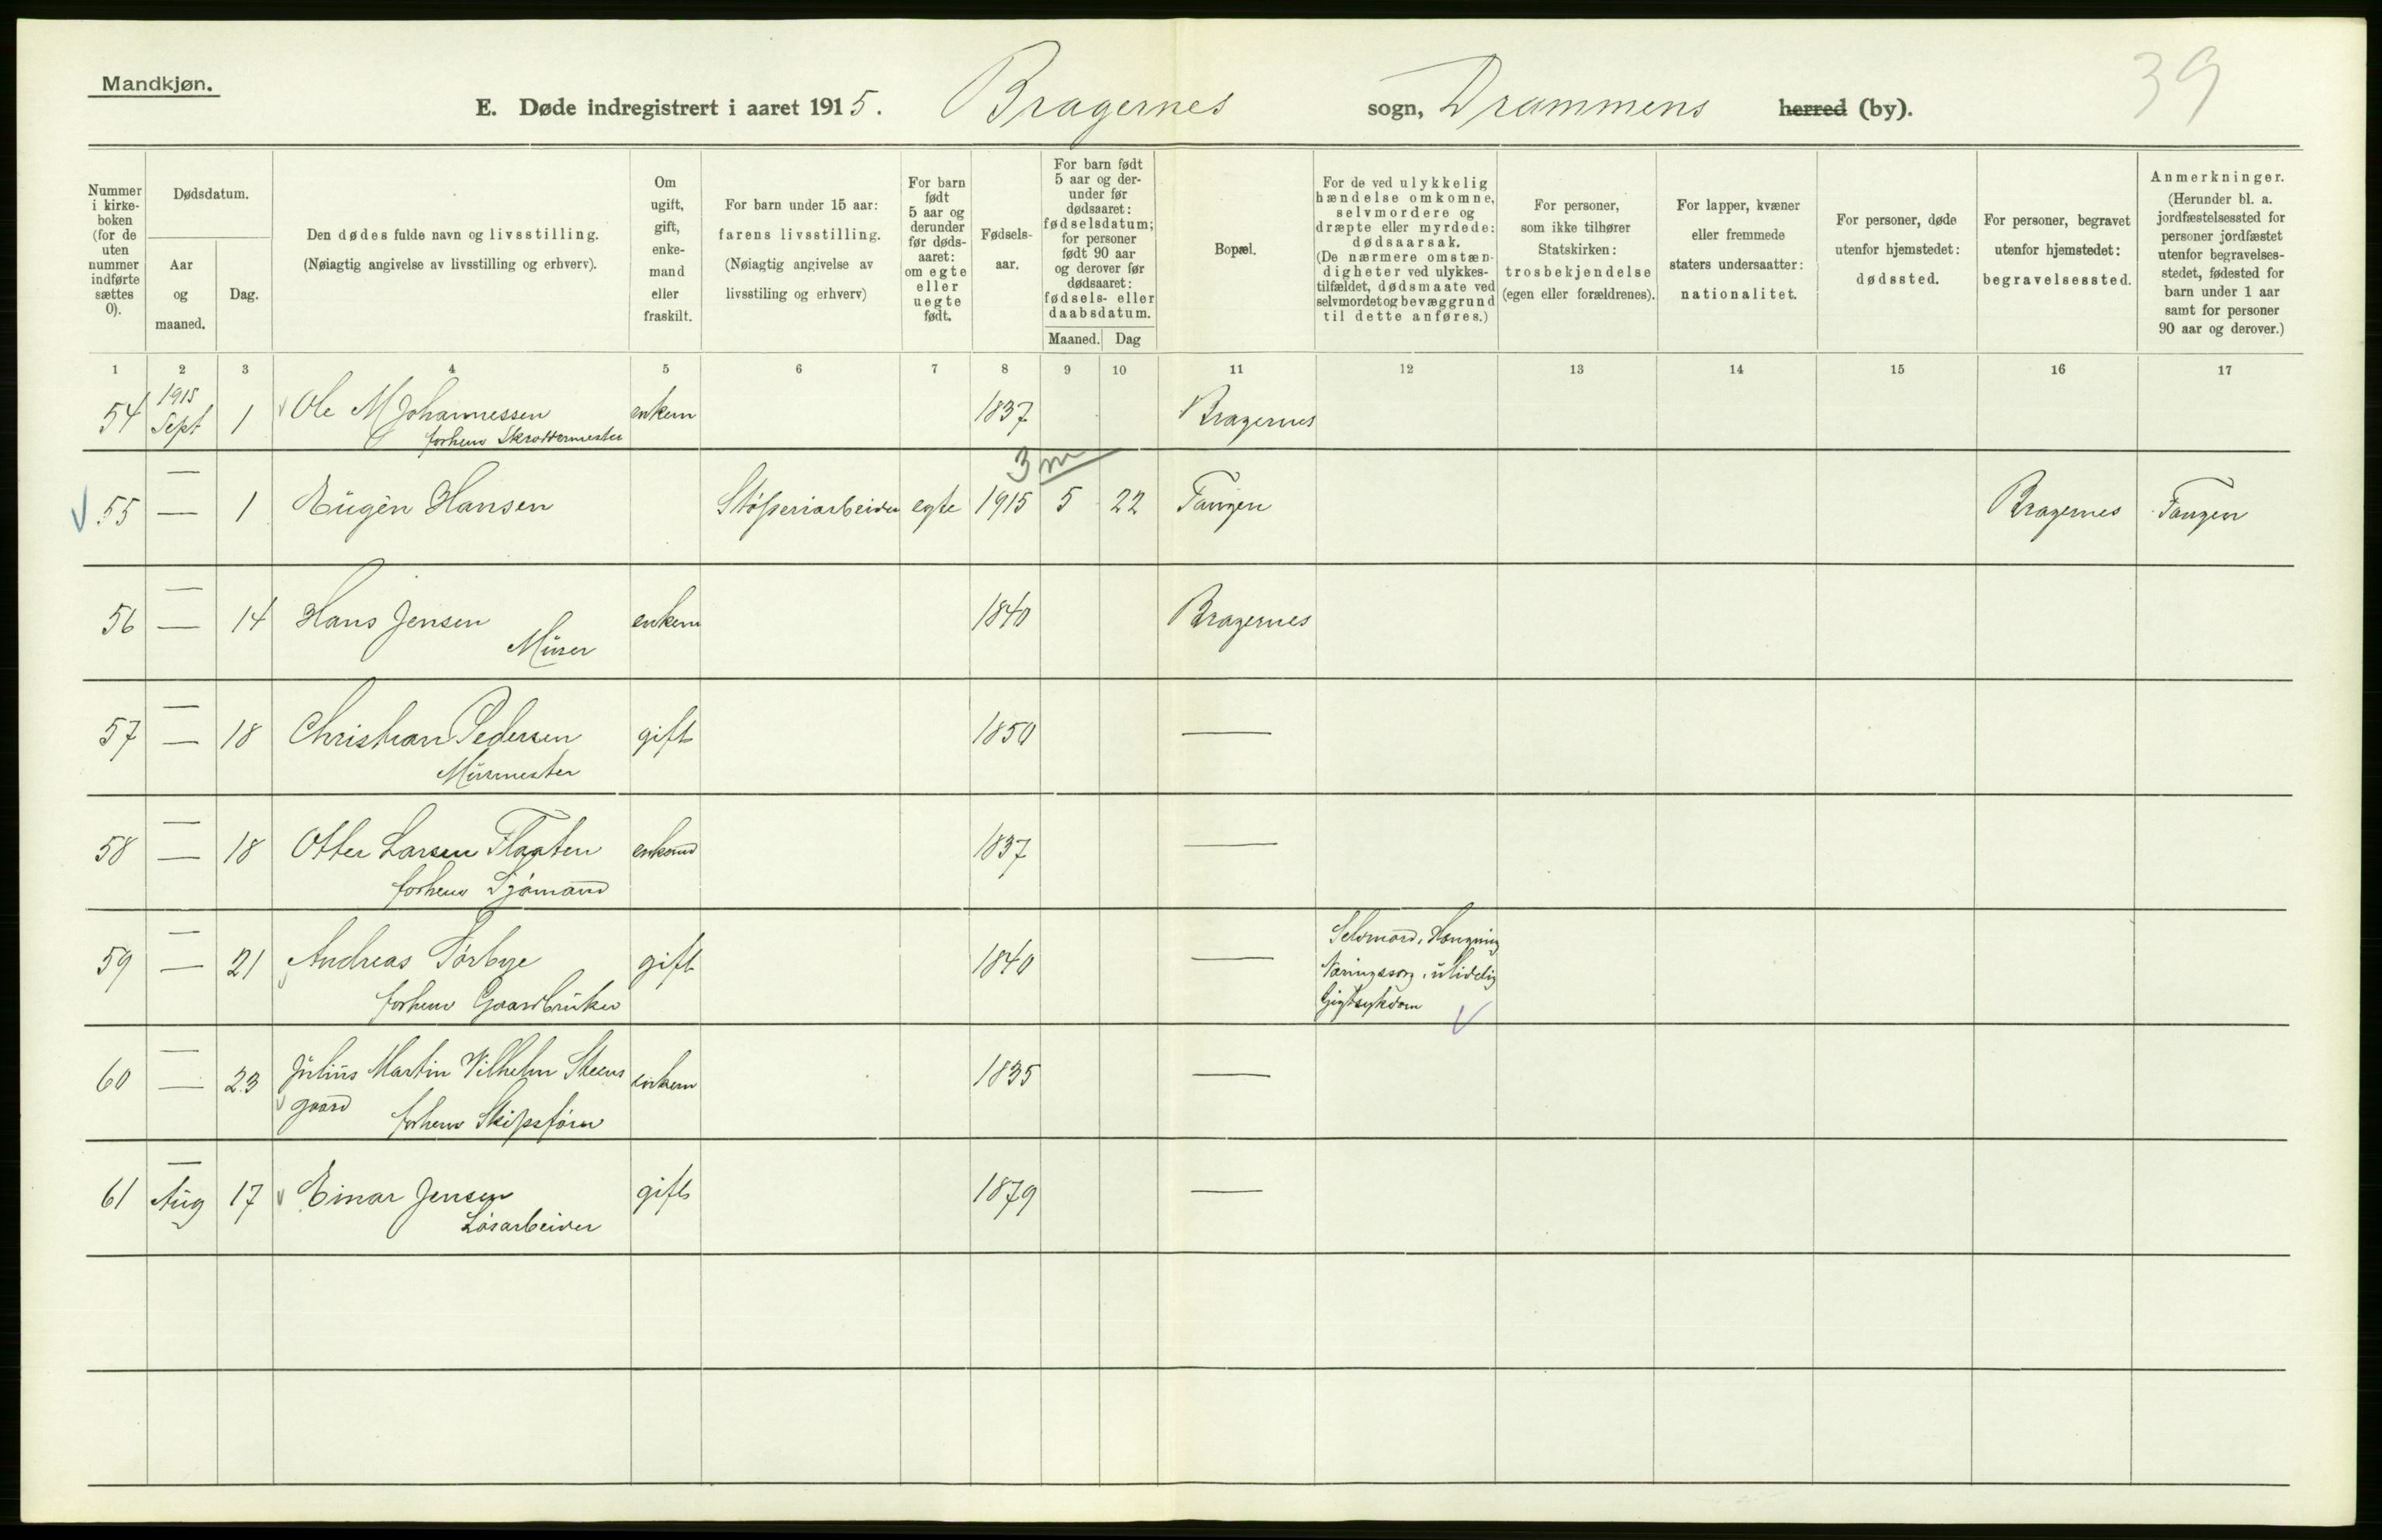 Mandkjøn.
39
E. Døde indregistrert i aaret 1915. Bragernes sogn, Drammens herred (by).
Nummer i kirke-boken (for de uten nummer indførte sættes 0).
Dødsdatum.
Aar og maaned.
Dag.
Den dødes fulde navn og livsstilling.
(Nøiagtig angivelse av livsstilling og erhverv).
Om ugift, gift, enke-mand eller fraskilt.
For barn under 15 aar: farens livsstilling. (Nøiagtig angivelse av livsstiling og erhverv)
For barn født 5 aar og derunder før døds-aaret: om egte eller uegte født.
Fødsels-aar.
For barn født 5 aar og der-under før dødsaaret: fødselsdatum; for personer født 90 aar og derover før dødsaaret: fødsels- eller daabsdatum.
Maaned. Dag
Bopæl.
For de ved ulykkelig hændelse omkomne, selvmordere og dræpte eller myrdede: dødsaarsak. (De nærmere omstæn-digheter ved ulykkes-tilfældet, dødsmaate ved selvmordet og bevæggrund til dette anføres.)
For personer, som ikke tilhører Statskirken: trosbekjendelse (egen eller forældrenes).
For lapper, kvæner eller fremmede staters undersaatter: nationalitet.
For personer, døde utenfor hjemstedet: dødssted.
For personer, begravet utenfor hjemstedet: begravelsessted.
Anmerkninger. (Herunder bl. a. jordfæstelsessted for personer jordfæstet utenfor begravelses-stedet, fødested for barn under 1 aar samt for personer 90 aar og derover.)
1 2 3 4 5 6 7 8 9 10 11 12 13 14 15 16 17
1915
54 Sept 1 Ole M Johannessen enkem 1837 Bragernes
forhenv Skræddermester
3 m
55 — 1 Eugèn Hansen Støperiarbeider egte 1915 5 22 Tangen Bragernes Tangen
56 — 14 Hans Jensen enkem 1840 Bragernes
Murer
57 — 18 Christian Pedersen gift 1850 —
Murmester
58 — 18 Otter Larsen Flaaten enkemd 1837 —
forhenv Sjømand
59 — 21 Andreas Sørbye gift 1840 — Selvmord, Hængning
Næringssorg, ulidelig
forhenv Gaardbruker Gigtsykdom
60 — 23 Julius Martin Vilhelm Steens enkem 1835 —
gaard forhenv Skipsfører
61 Aug 17 Einar Jensen gift 1879 —
Løsarbeider